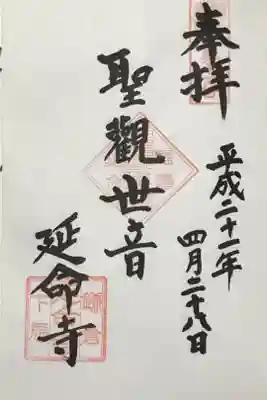 奉拝
平成二十一年
四月二十八日
聖觀世音
延命寺